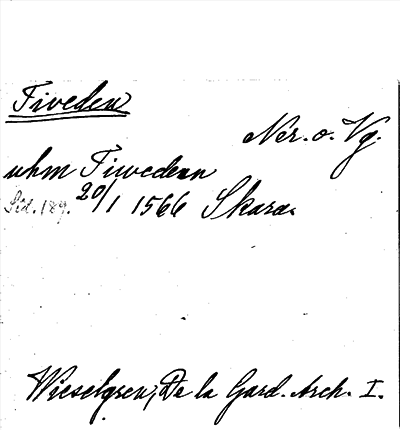 Tiveden
När. o. Vg.
uhm Tiwedenn
Sid. 189. 20/1 1566 Skara.
Wieselgren, De la Gard. Arch. I.